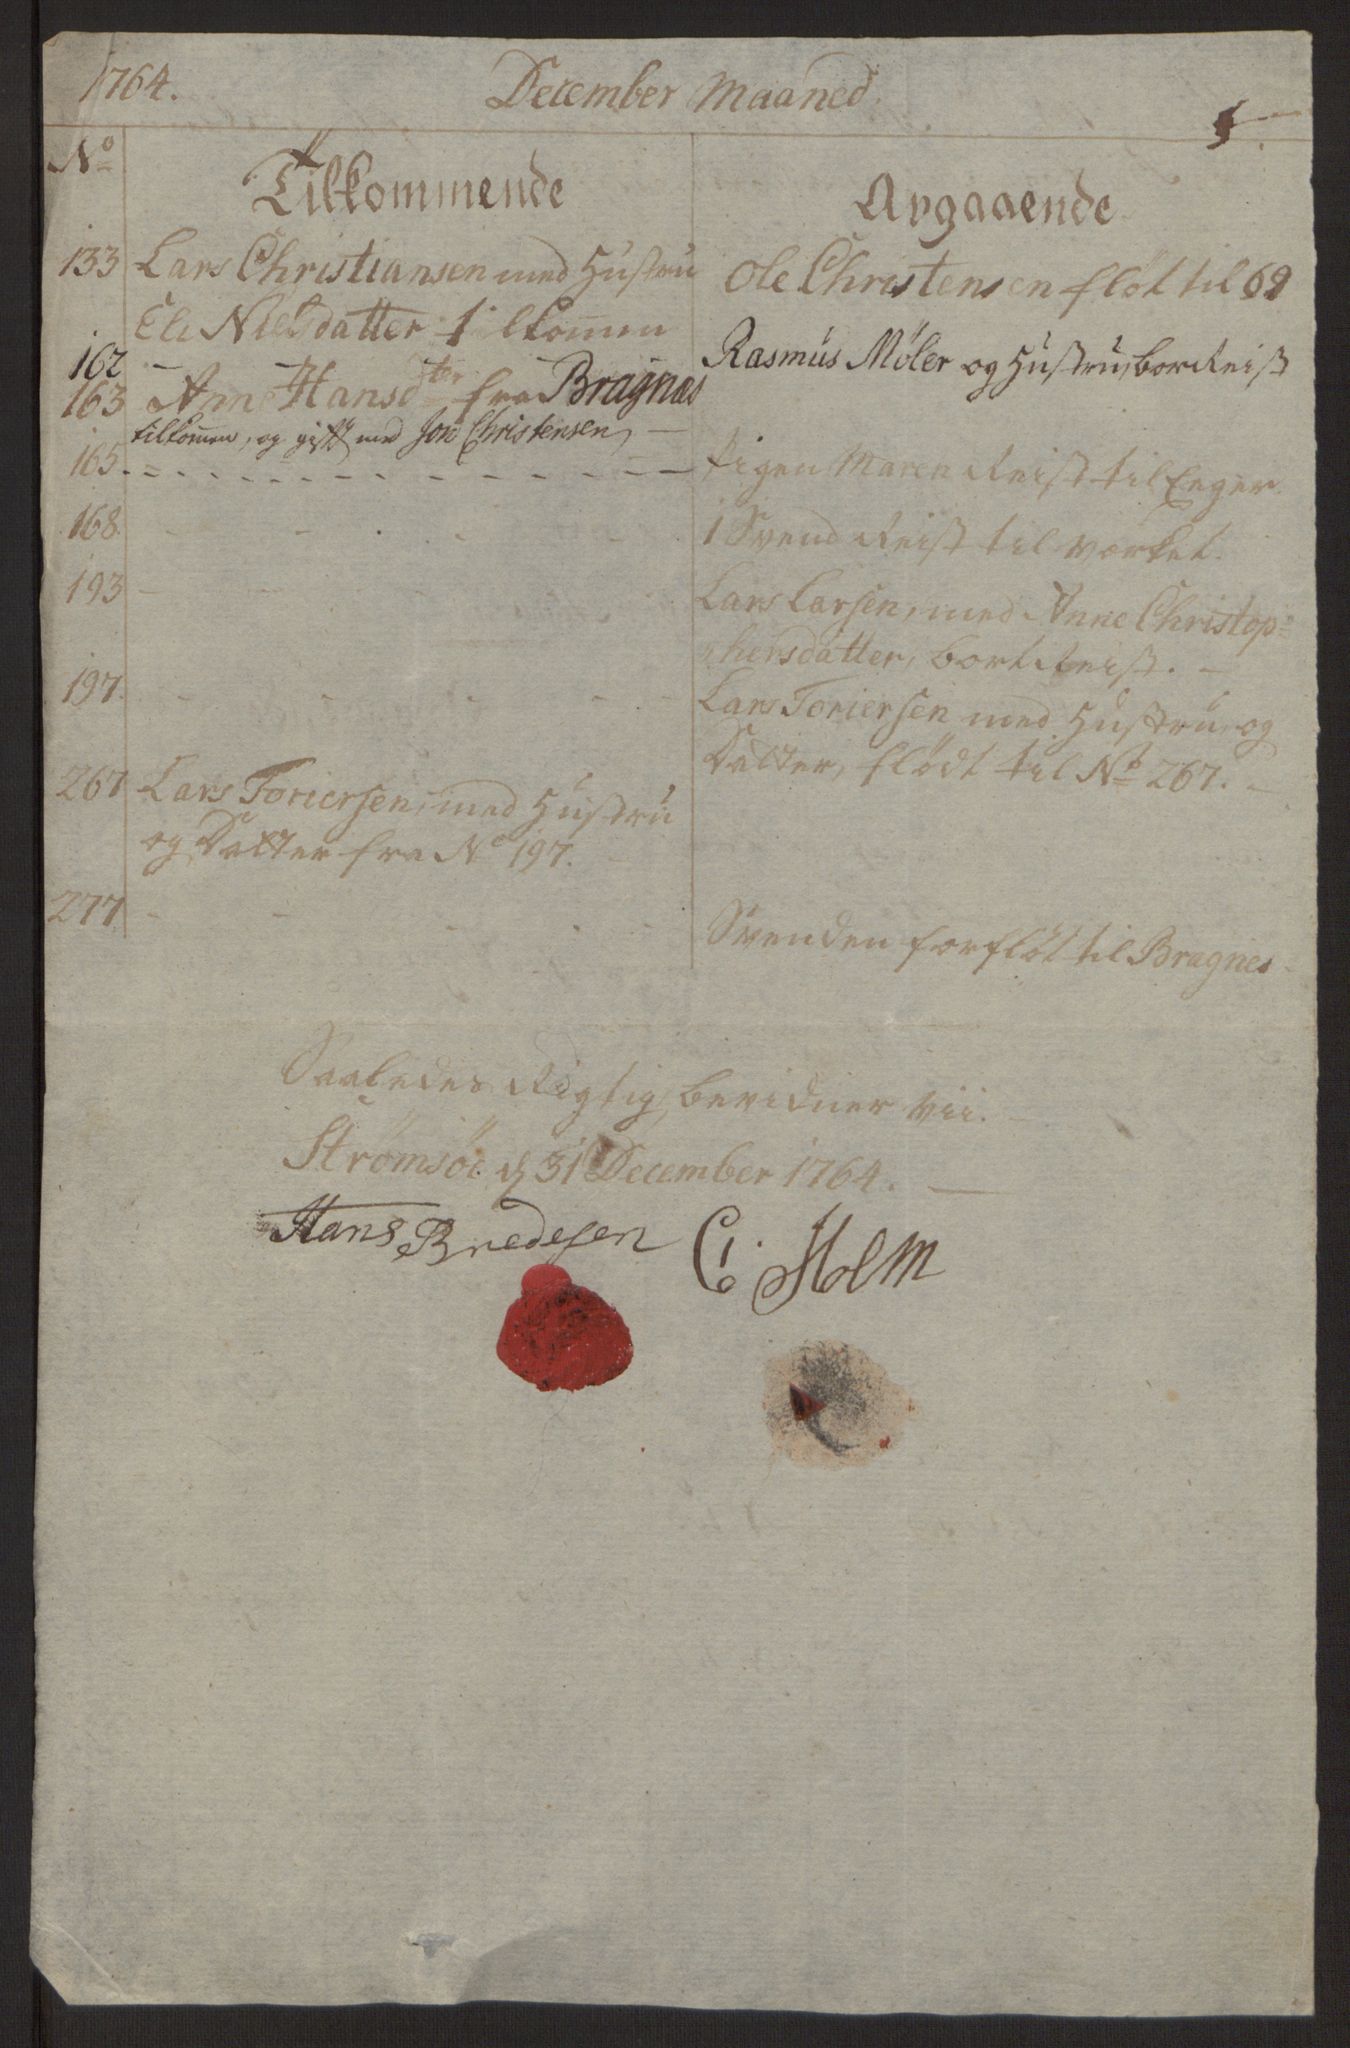 1764. December Maaned
No
Tilkommende
Avgaaende
133 Lars Christiansen med Hustru
Ole Christensen fløt til 69
Eli Nielsdatter tilkom̄en
162 -
Rasmus Møler og Hustru, bortreist
163 Anne Hansdtr fra Bragnæs
tilkom̄en, og gift med Jon Christensen,
165. - - - - - - - - - - - -
Pigen Maren Reist til Eeger.
168. - - - - -
1 Svend Reist til værket.
193 - - - - -
Lars Larsen, med Anne Christop=
hersdatter, bort Reist. -
197. - - - - -
Lars Toriersen med Hustru, og
Datter, flødt til No 267. -
267 Lars Toriersen, med Hustru
og Datter fra No 197.
277. - - - - -
Svenden forfløt til Bragnes
Saaledes Rigtig, bevidner vii. -
Strømsöe d 31 December 1764. -
Hans Bredesen C. Holm